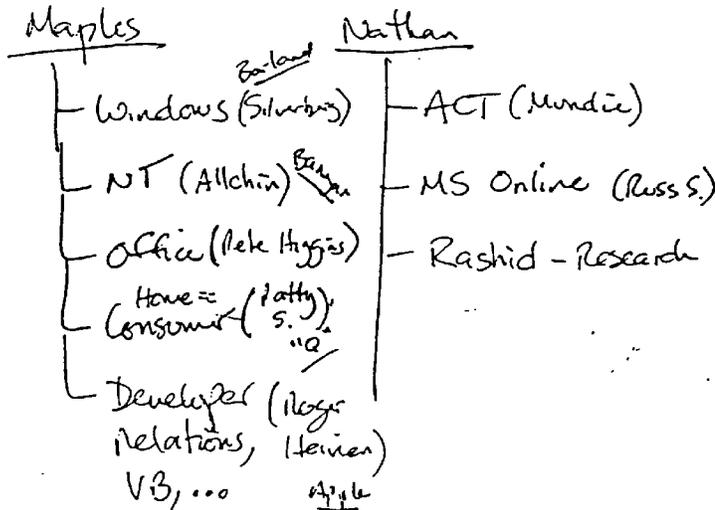 Maples
Borland
Windows (Silverberg)
NT (Allchin) Banyan
Office (Pete Higgins)
Home =
Consumer (Patty S.)
"Q"
Developer (Roger
Relations, Heinen)
VB, ... Apple
Nathan
ACT (Mundie)
MS Online (Russ S.)
Rashid - Research